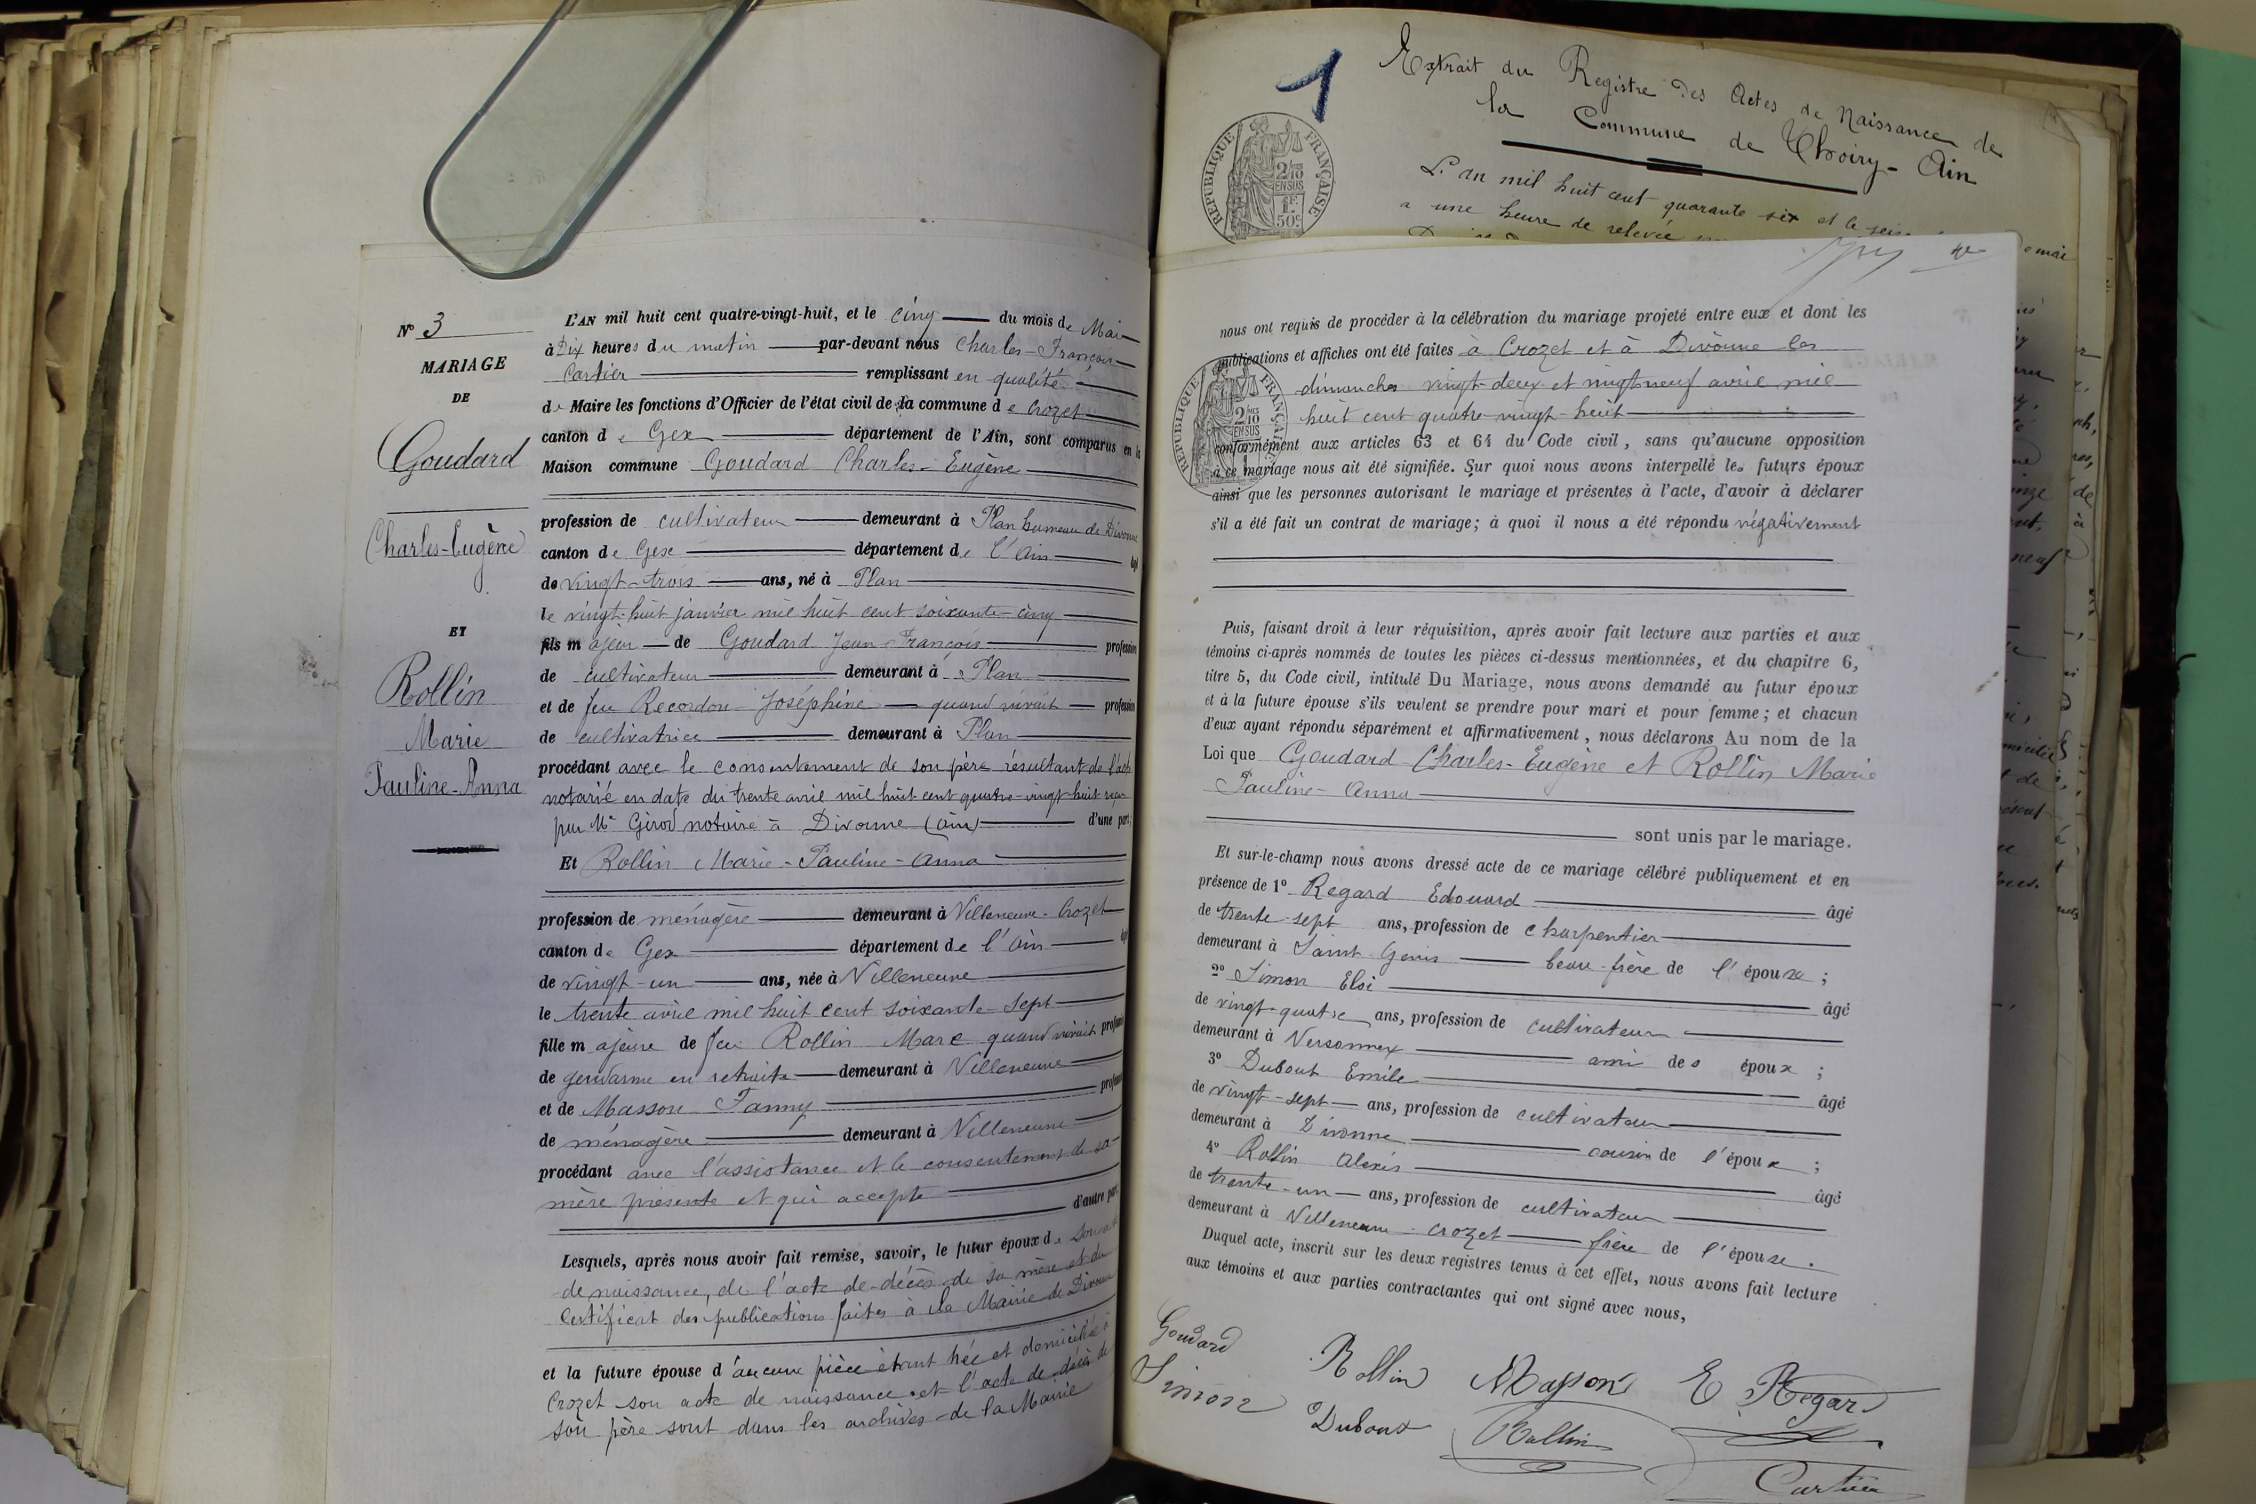 N° 3
MARIAGE
DE
Goudard
Charles-Eugène
ET
Rollin
Marie
Pauline-Anna
L'AN mil huit cent quatre-vingt-huit, et le cinq du mois de Mai
à Dix heures du matin par-devant nous Charles-François
Cartier remplissant en qualité
de Maire les fonctions d'Officier de l'état civil de la commune de Crozet
canton de Gex département de l'Ain, sont comparus en la
Maison commune Goudard Charles-Eugène
profession de cultivateur demeurant à Plan hameau de Divonne
canton de Gex département de l'Ain âgé
de vingt-trois ans, né à Plan
le vingt-huit janvier mil huit cent soixante-cinq
fils majeur de Goudard Jean-François profession
de cultivateur demeurant à Plan
et de feu Recordon Joséphine quand vivait profession
de cultivatrice demeurant à Plan
procédant avec le consentement de son père résultant de l'acte
notarié en date du trente avril mil huit cent quatre-vingt-huit reçu
par Me Girod notaire à Divonne (Ain) d'une part;
Et Rollin Marie-Pauline-Anna
profession de ménagère demeurant à Villeneuve-Crozet
canton de Gex département de l'Ain âgé
de vingt-un ans, née à Villeneuve
le trente avril mil huit cent soixante-sept
fille majeure de feu Rollin Marc quand vivait profession
de gendarme en retraite demeurant à Villeneuve
et de Masson Fanny profession
de ménagère demeurant à Villeneuve
procédant avec l'assistance et le consentement de sa
mère présente et qui accepte d'autre part.
Lesquels, après nous avoir fait remise, savoir, le futur époux de son acte
de naissance, de l'acte de décès de sa mère et du
certificat des publications faites à la Mairie de Divonne
et la future épouse d'aucune pièce étant née et domiciliée à
Crozet son acte de naissance et l'acte de décès de
son père sont dans les archives de la Mairie
1
Extrait du Registre des Actes de Naissance de
la Commune de Thoiry-Ain
RÉPUBLIQUE FRANÇAISE
2/10
EN SUS
1F
50c
L'an mil huit cent quarante six et le seize
a une heure de relevée
nous ont requis de procéder à la célébration du mariage projeté entre eux et dont les
publications et affiches ont été faites à Crozet et à Divonne les
dimanches vingt-deux et vingt-neuf avril mil
huit cent quatre-vingt-huit
RÉPUBLIQUE FRANÇAISE
2/10
EN SUS
conformément aux articles 63 et 64 du Code civil, sans qu'aucune opposition
à ce mariage nous ait été signifiée. Sur quoi nous avons interpellé les futurs époux
ainsi que les personnes autorisant le mariage et présentes à l'acte, d'avoir à déclarer
s'il a été fait un contrat de mariage; à quoi il nous a été répondu négativement
Puis, faisant droit à leur réquisition, après avoir fait lecture aux parties et aux
témoins ci-après nommés de toutes les pièces ci-dessus mentionnées, et du chapitre 6,
titre 5, du Code civil, intitulé Du Mariage, nous avons demandé au futur époux
et à la future épouse s'ils veulent se prendre pour mari et pour femme; et chacun
d'eux ayant répondu séparément et affirmativement, nous déclarons Au nom de la
Loi que Goudard Charles-Eugène et Rollin Marie
Pauline-Anna
sont unis par le mariage.
Et sur-le-champ nous avons dressé acte de ce mariage célébré publiquement et en
présence de 1° Regard Edouard âgé
de trente-sept ans, profession de charpentier
demeurant à Saint-Genis beau-frère de l'épouse;
2° Simon Eloi âgé
de vingt-quatre ans, profession de cultivateur
demeurant à Versonnex ami des époux;
3° Dubout Emile âgé
de vingt-sept ans, profession de cultivateur
demeurant à Divonne cousin de l'époux;
4° Rollin Alexis âgé
de trente-un ans, profession de cultivateur
demeurant à Villeneuve-Crozet frère de l'épouse.
Duquel acte, inscrit sur les deux registres tenus à cet effet, nous avons fait lecture
aux témoins et aux parties contractantes qui ont signé avec nous,
Goudard Rollin Masson E Regard
Simon Dubout Rollin
Cartier